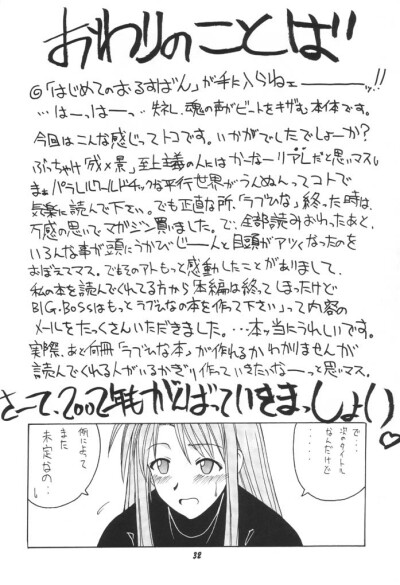 おわりのことば
◎「はじめてのおるすばん」が手に入らねェーーーッ!!
…はーっはーっ…失礼、魂の声がビートをキザむ本体です。
今回はこんな感じってトコです。いかがでしたでしょーか?
ぶっちゃけ「成×景」至上主義の人にはかーなーりアレだと思いマスし
まぁパラレルワールドチックな平行世界がうんぬんってコトで
気楽に読んで下さい。でも正直な所、「ラブひな」終った時は、
万感の思いでマガジン買いました。で、全部読みおわったあと、
いろんな事が頭にうかびじーんと目頭がアツくなったのを
おぼえてマス。でもそのアトもっと感動したことがありまして、
私の本を読んでくれてる方から本編は終ってしまったけど
BIG.BOSSはもっとラブひなの本を作って下さいって内容の
メールをたっくさんいただきました。‥本ッ当にうれしいです。
実際、あと何冊「ラブひな本」が作れるかわかりませんが
読んでくれる人がいるかぎり作っていきたいなーっと思いマス。
さーて、2002年もがんばっていきまっしょい♡
で…
次のタイトル
なんだけど…
例によって
また
未定なの…
32